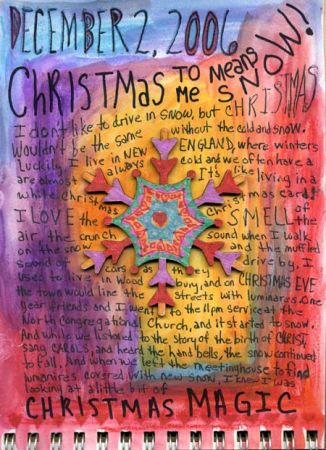 DECEMBER 2, 2006
CHRISTMAS TO ME MEANS SNOW!
I don't like to drive in SNOW, but CHRISTMAS
Wouldn't be the same without the cold and snow.
Luckily I live in NEW ENGLAND, where winters
are almost always cold and we often have a
white Christmas. It's like living in a
Christmas card!
I LOVE the SMELL of
the air, the crunch sound when I walk
on the snow and the muffled
sound of cars as they drive by. I
used to live in Woodbury, and on CHRISTMAS EVE
the town would line the streets with luminares. One
year friends and I went to the 11pm service at the
North Congregational Church, and it started to snow.
And while we listened to the story of the birth of CHRIST,
sang CAROLS, and heard the hand bells, the snow continued
to fall. And when we left the meetinghouse to find
luminaires covered with new snow, I knew I was
looking at a little bit of
CHRISTMAS MAGIC